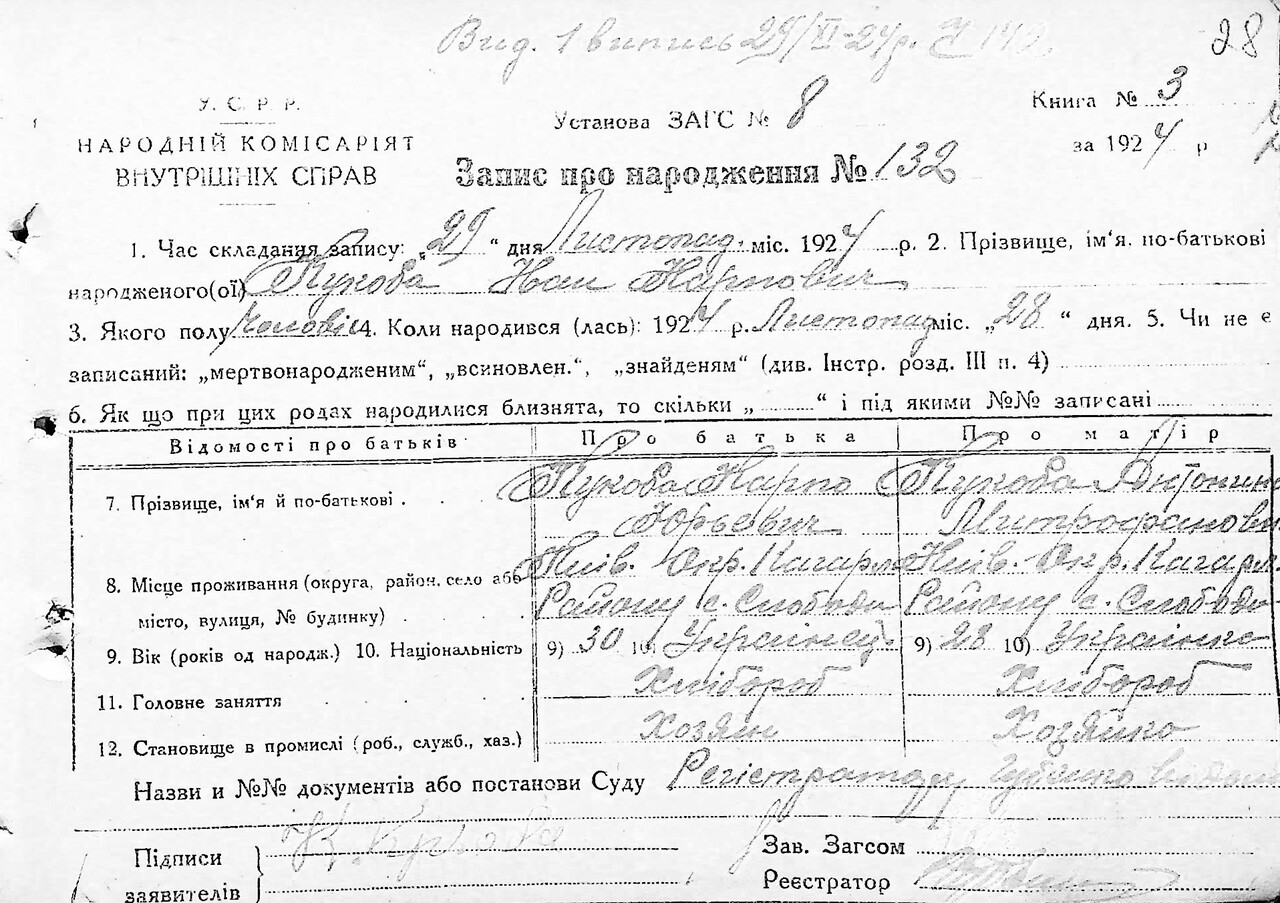 Вид. 1 випись 29/XI-24 р.
28
У. С. Р. Р.
НАРОДНІЙ КОМІСАРІЯТ
ВНУТРІШНІХ СПРАВ
Установа ЗАГС № 8
Запис про народження № 132
Книга № 3
за 1924 р
1. Час складання запису: „29“ дня Листопад. міс. 1924 р. 2. Прізвище, ім'я, по-батькові
народженого(ої) Кукоба Іван Карпович
3. Якого полу Чоловіч 4. Коли народився (лась): 1924 р. Листопад міс. „28“ дня. 5. Чи не є
записаний: „мертвонародженим“, „всиновлен.“, „знайденям“ (див. Інстр. розд. III п. 4)
6. Як що при цих родах народилися близнята, то скільки „ “ і під якими №№ записані
Відомості про батьків
Про батька
Про матір
7. Прізвище, ім'я й по-батькові .
Кукоба Карпо
Юрьевич
Кукоба Антонина
Митрофанови
8. Місце проживання (округа, район, село або
місто, вулиця, № будинку) .
Київ. Окр. Кагарл.
Району с. Слободи
Київ. Окр. Кагарл.
Району с. Слободи
9. Вік (років од народж.) 10. Національність
9) 30 10) Українец
9) 28 10) Українка
11. Головне заняття
Хлібороб
Хлібороб
12. Становище в промислі (роб., служб., хаз.)
Хозяин
Хозяйка
Назви и №№ документів або постанови Суду Регістратору
Підписи
заявителів
К. Кукоба
Зав. Загсом
Реєстратор